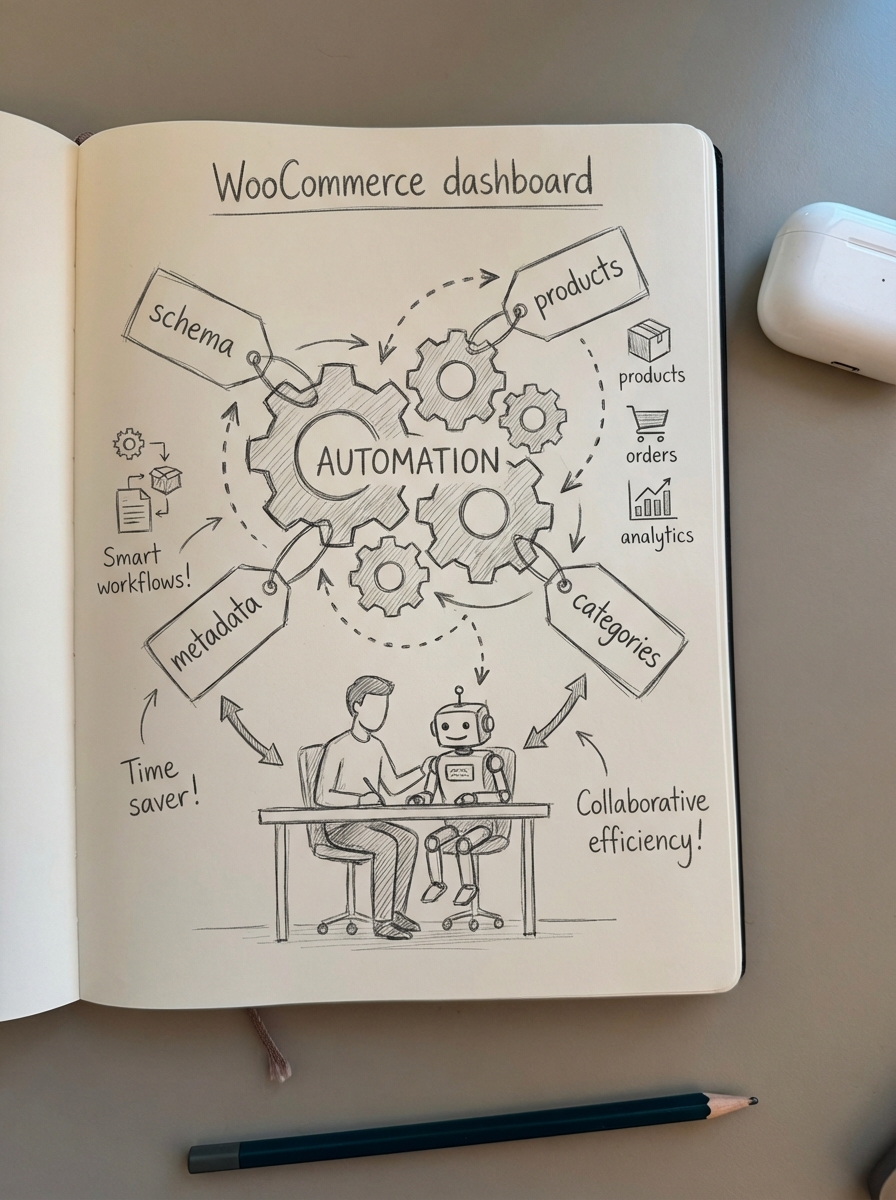 WooCommerce dashboard
schema
products
products
orders
analytics
AUTOMATION
Smart
workflows!
metadata
categories
Time
saver!
Collaborative
efficiency!